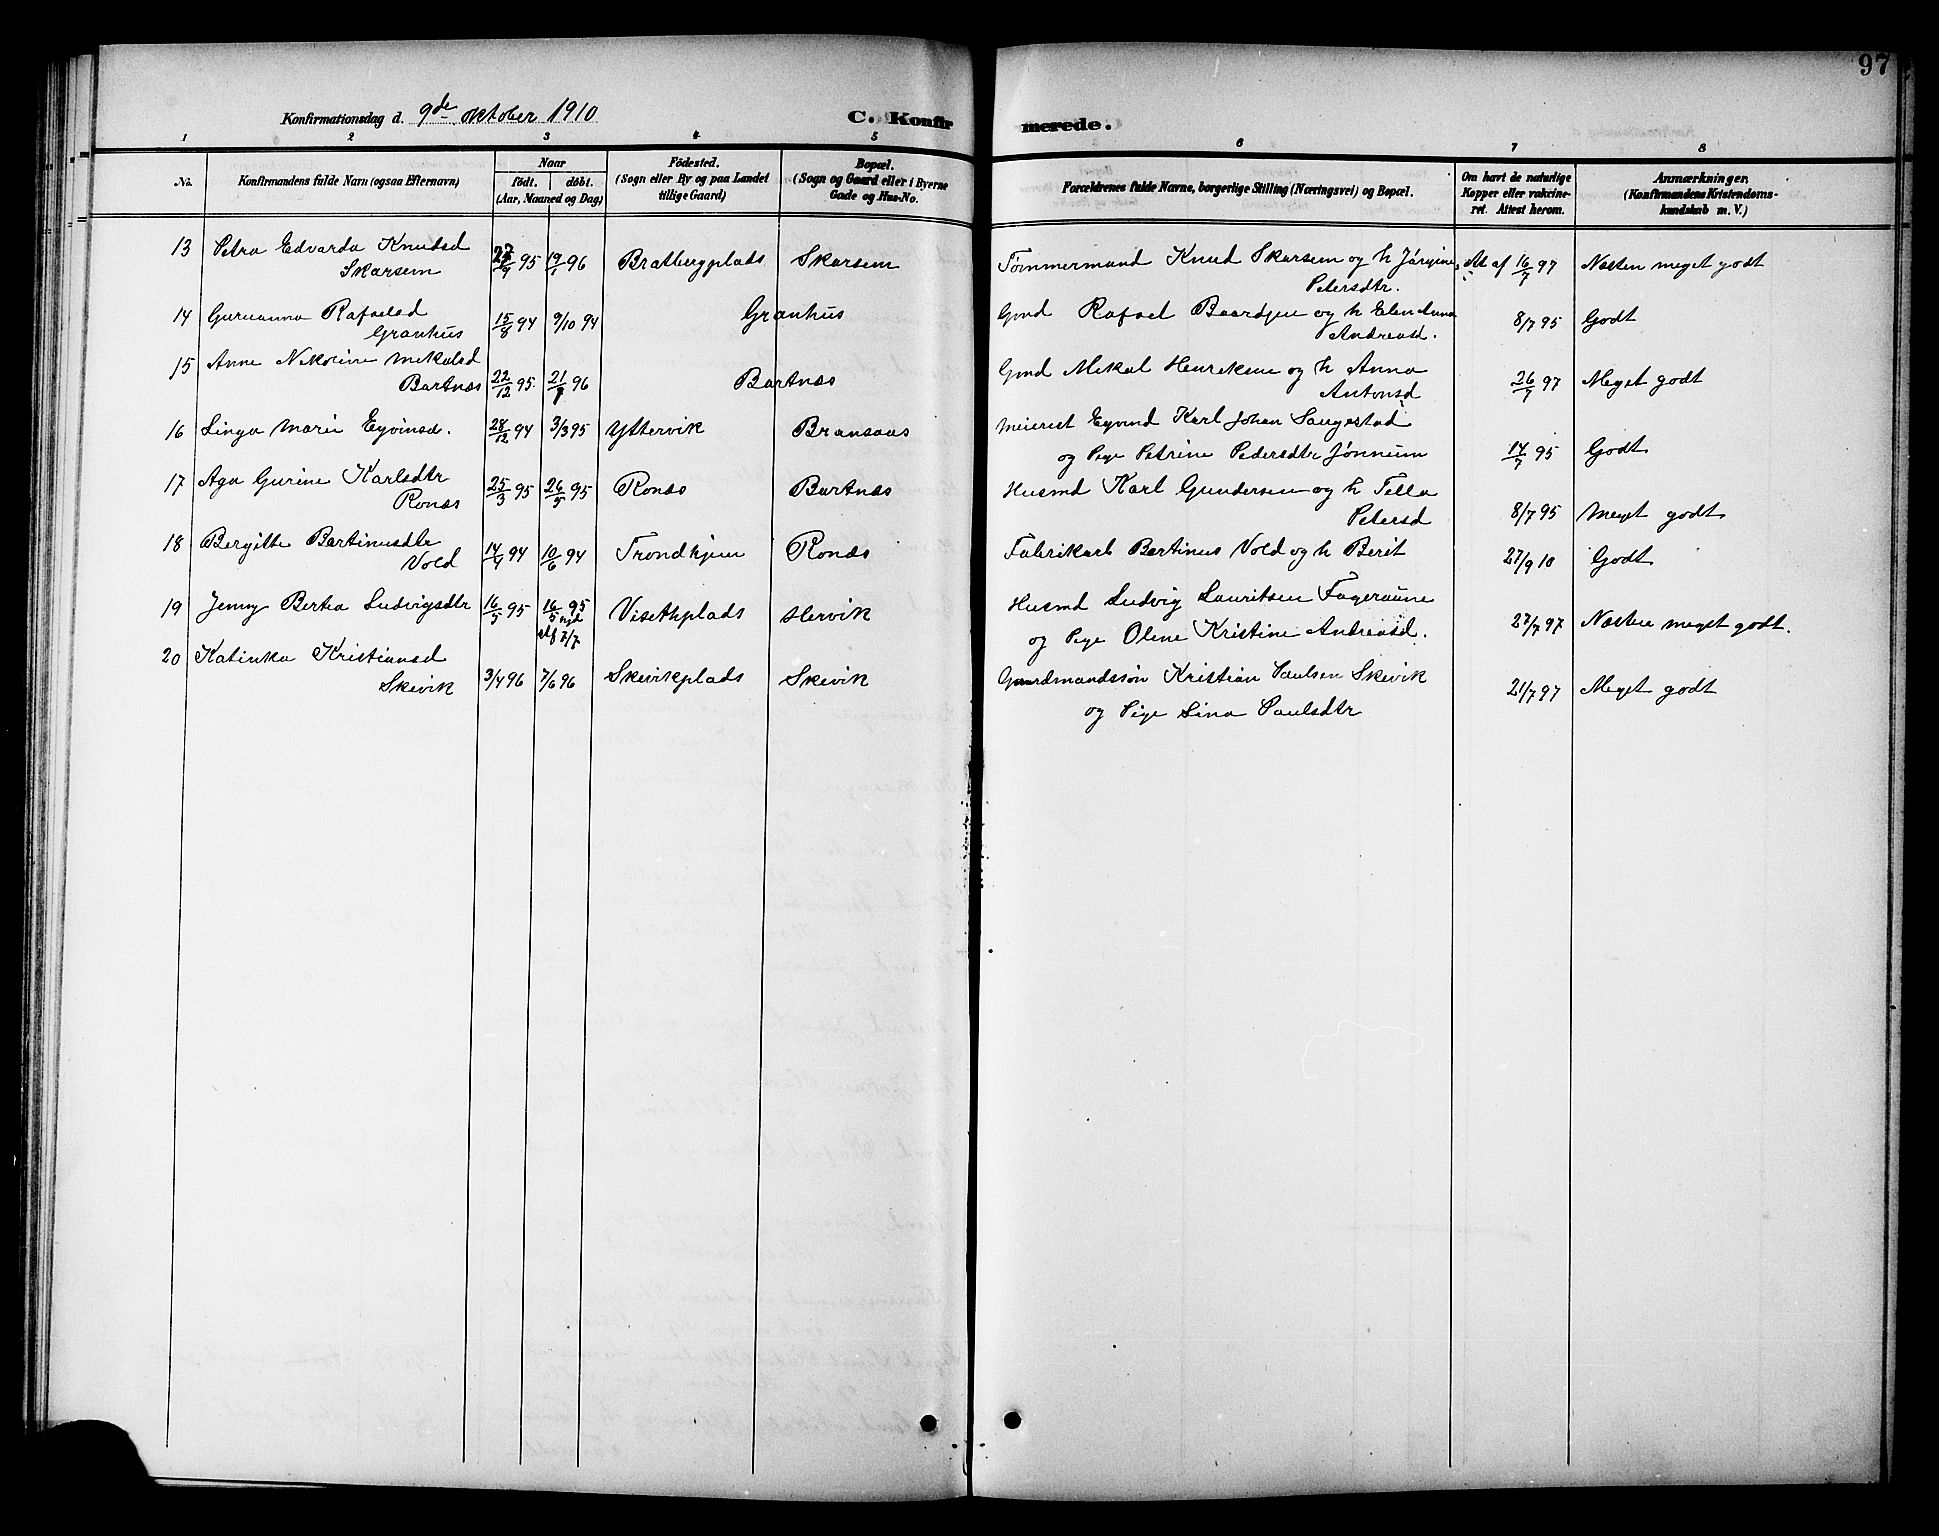 97
Konfirmationsdag d. 9de oktober 1910
C. Konfirmerede.
1 2 3 4 5 6 7 8
No.
Konfirmandens fulde Navn (ogsaa Efternavn)
Naar
født. døbt.
(Aar, Maaned og Dag)
Fødested.
(Sogn eller By og paa Landet
tillige Gaard)
Bopæl.
(Sogn og Gaard eller i Byerne
Gade og Hus-No.
Forældrenes fulde Navne, borgerlige Stilling (Næringsvei) og Bopæl.
Om havt de naturlige
Kopper eller vakcine-
ret. Attest herom.
Anmærkninger.
(Konfirmandens Kristendoms-
kundskab m. V.)
13 Petra Edvarda Knudsd 95 19/1 96 Bratbergplads Skarsem Tømmermand Knud Skarsem og h Jørgine At af 16/7 97 Næsten meget godt
Skarsem Petersdtr.
14 Guruanna Rafaelsd 15/8 94 9/10 94 Granhus Gmd Rafael Baardsen og h Elen Anna 8/7 95 Godt
Granhus Andreasd.
15 Anne Nikoline Mikalsd 22/12 95 21/ 96 Bartnæs Gmd Mikal Henriksen og h Anna 26/7 97 Meget godt
Bartnæs Antonsd
16 Linga Marie Eyvinsd. 28/12 94 3/3 95 Yttervik Bransaas Meierist Eyvind Karl Johan Saugestad
og Pige Petrine Pedersdtr Jønnum 14/7 95 Godt
17 Aga Gurine Karlsdtr 25/3 95 26/5 95 Ronæs Bartnæs Husmd Karl Gundersen og h Tella
Ronæs Petersd 8/7 95 Meget godt
18 Bergitte Bertinusdtr 14/4 94 10/6 94 Trondhjem Ronæs Fabrikarb Bertinus Vold og h Berit 27/9 10 Godt
Vold
19 Jenny Bertea Ludvigsdtr 16/5 95 16/5 95 Visethplads Hervik Husmd Ludvig Lauritsen Fageraune
7/7 og Pige Oline Kristine Andreasd. 27/7 97 Næsten meget godt.
20 Katinka Kristiansd 3/4 96 7/6 96 Skevikplads Skevik Gaardmandssøn Kristian Paulsen Skevik 21/7 97 Meget godt
Skevik og Pige Lina Paulsdtr